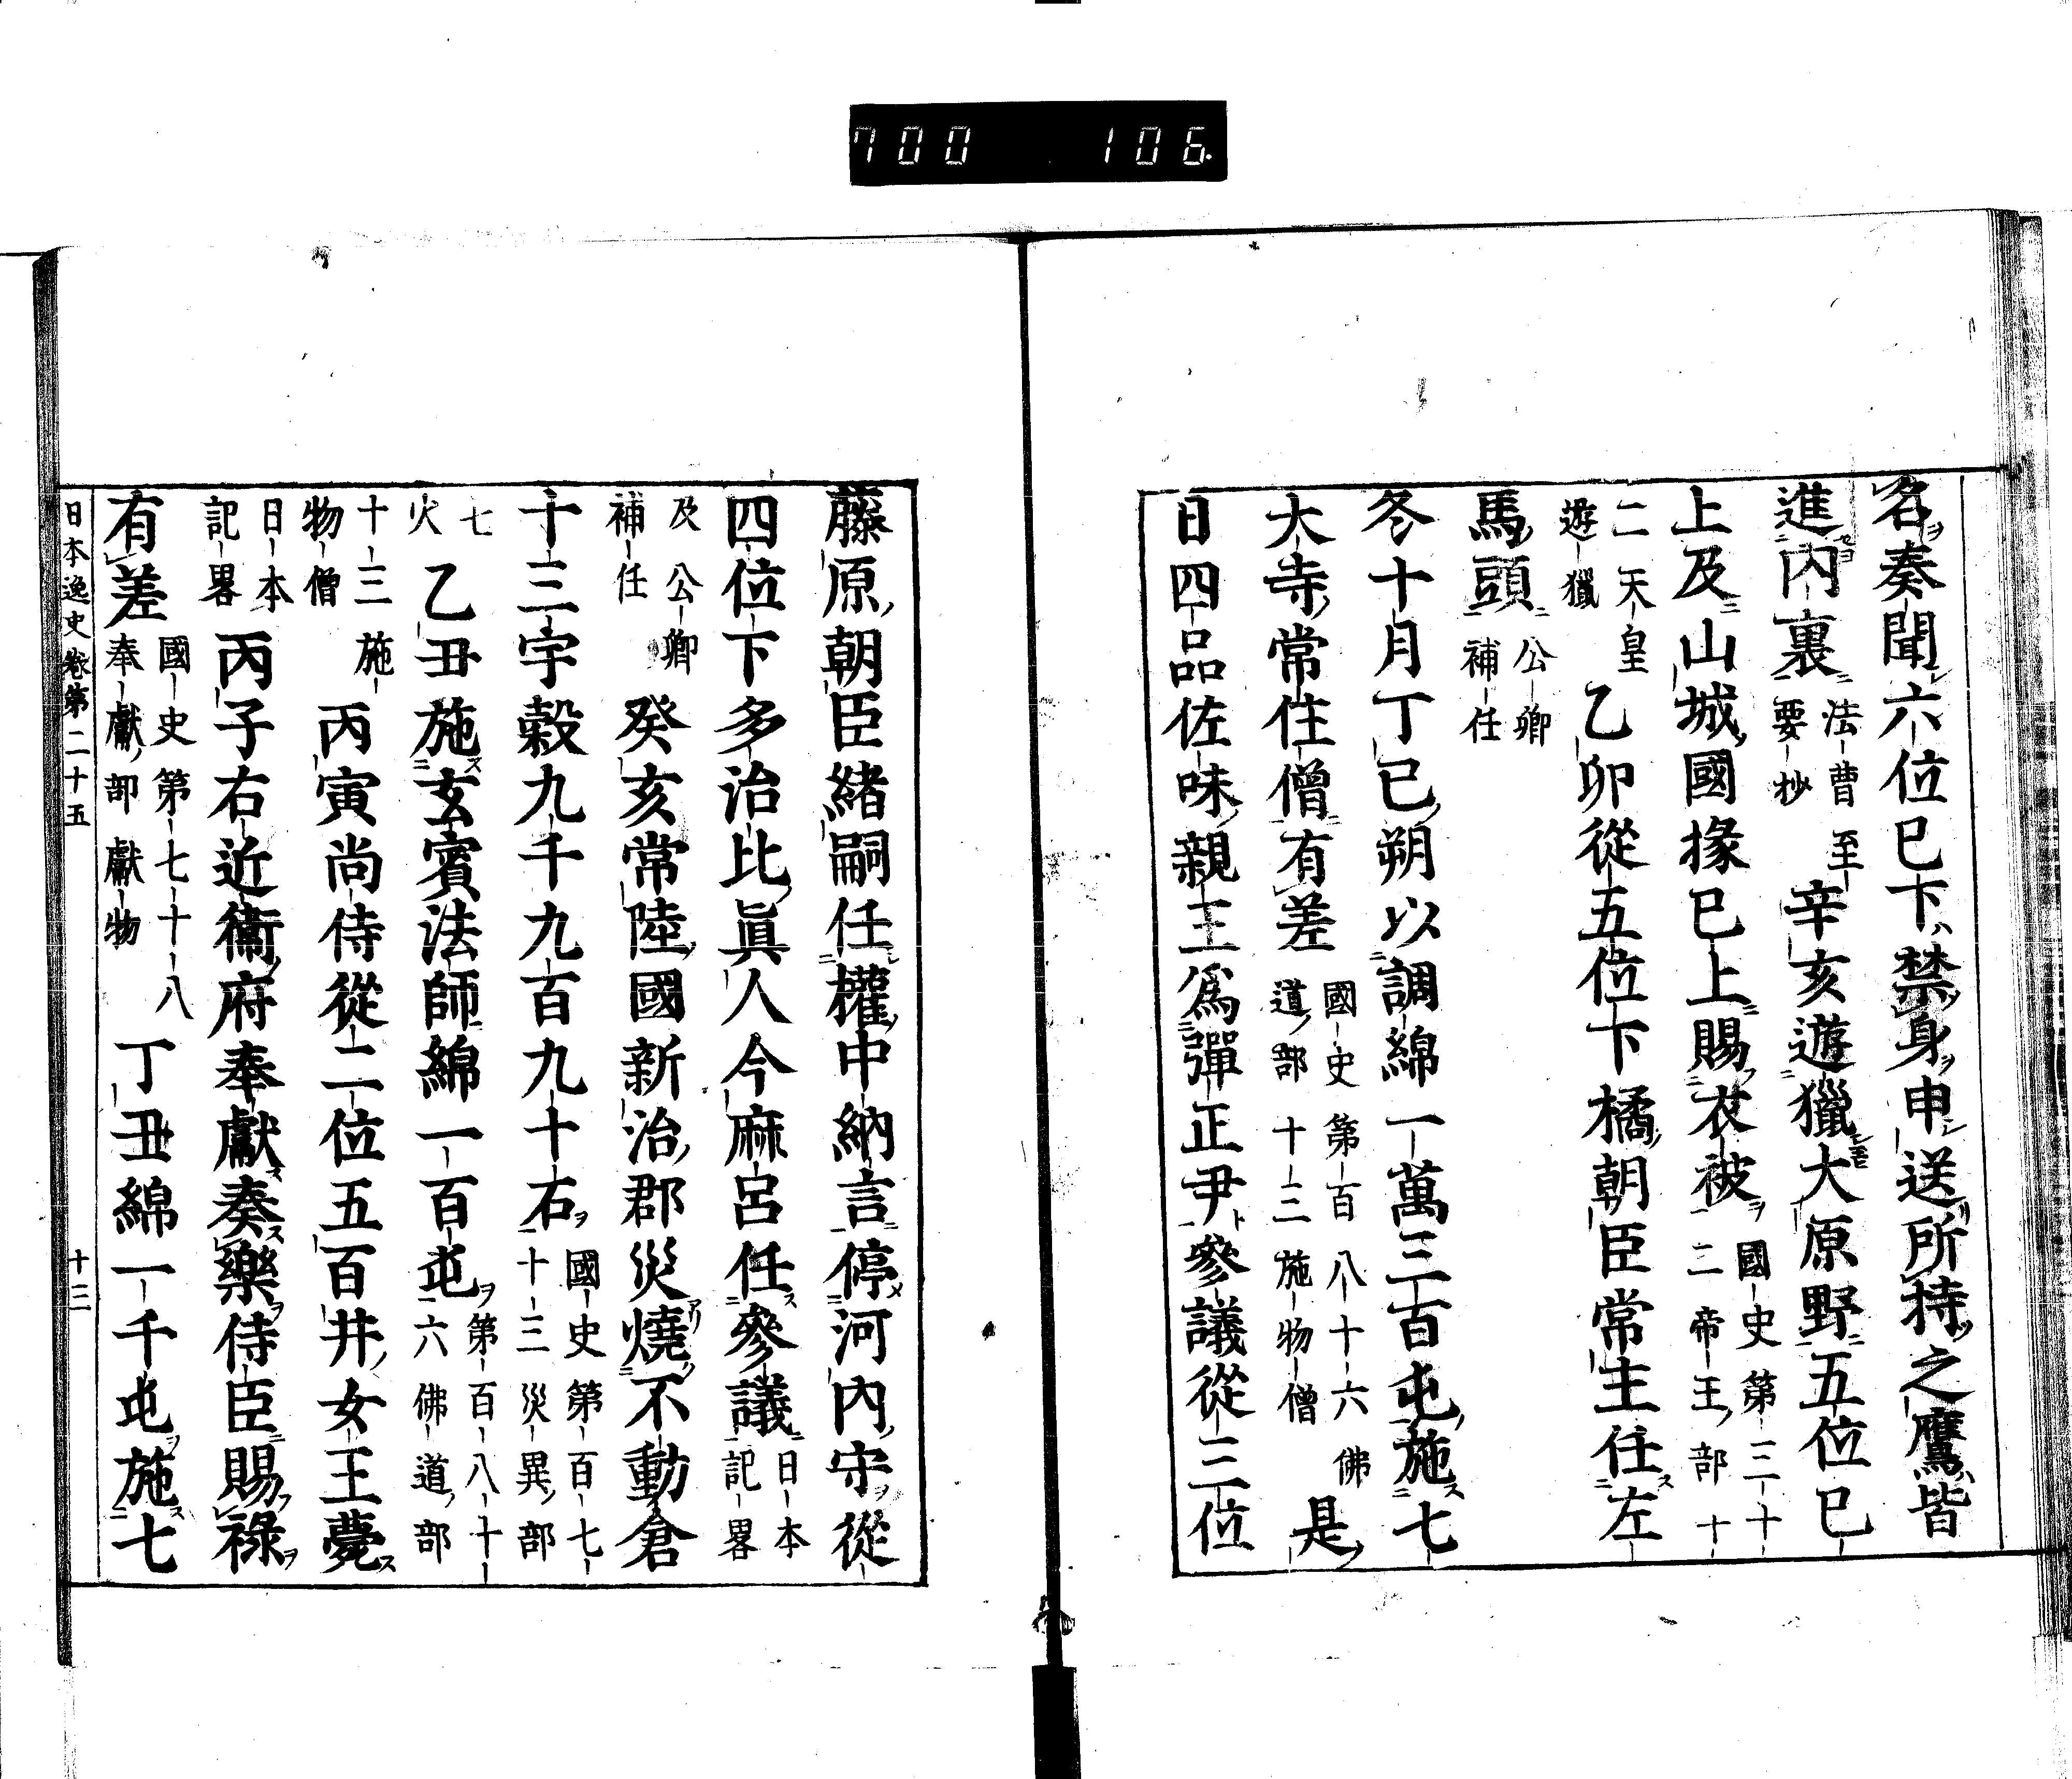 700 106
名奏聞六位已下禁身申送所持之鷹皆
進內裏法曹至要抄辛亥遊獵大原野五位已
上及山城國掾已上賜衣被國史第三十二帝王部十
二天皇遊獵乙卯從五位下橘朝臣常主任左
馬頭公卿補任
冬十月丁巳朔以調綿一萬三百屯施七
大寺常住僧有差國史第百八十六佛道部十三施物僧是
日四品佐味親王爲彈正尹參議從三位
藤原朝臣緒嗣任權中納言停河內守從
四位下多治比眞人今麻呂任參議日本記畧
及公卿補任癸亥常陸國新治郡災燒不動倉
十三宇穀九千九百九十石國史第百七十三災異部
七火乙丑施玄賓法師綿一百屯第百八十六佛道部
十三施物僧丙寅尚侍從二位五百井女王薨
日本記畧丙子右近衞府奉獻奏樂侍臣賜祿
有差國史第七十八奉獻部獻物丁丑綿一千屯施七
日本逸史卷第二十五 十三